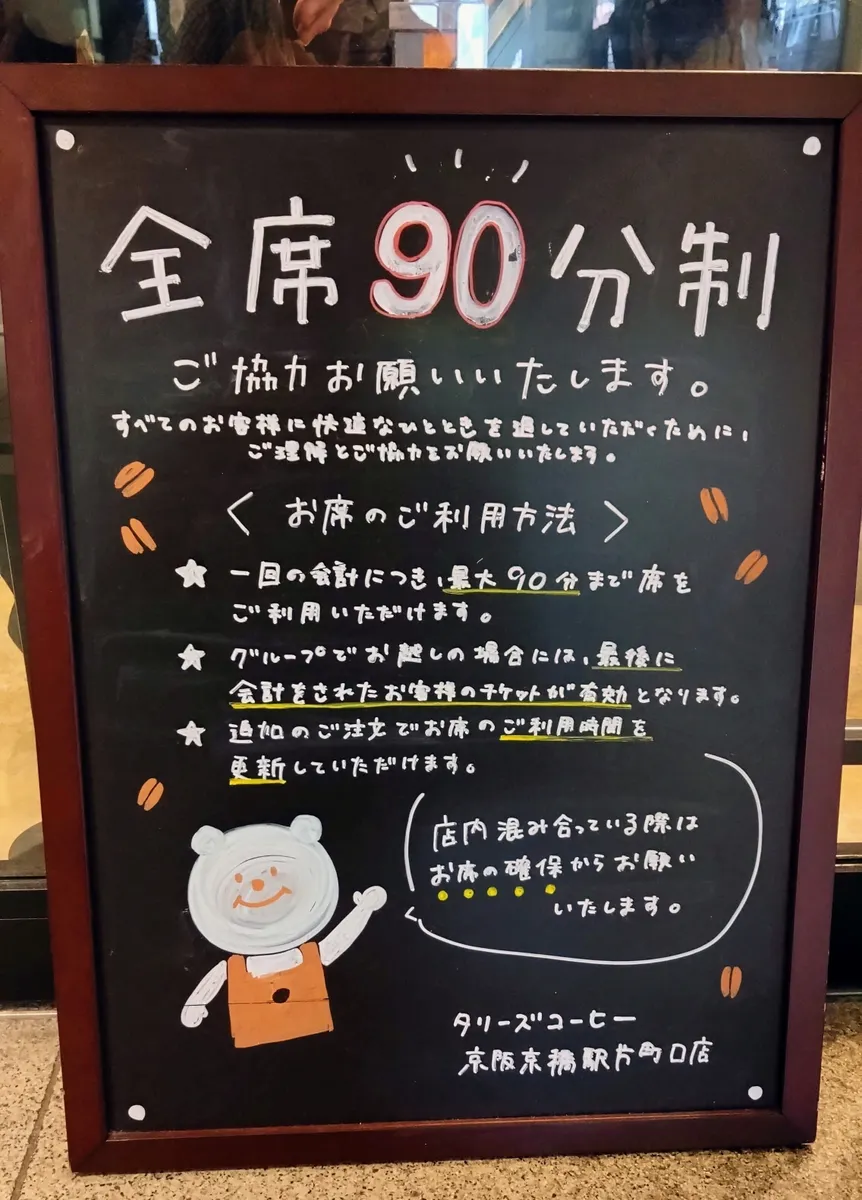 全席90分制
ご協力お願いいたします。
すべてのお客様に快適なひとときを過していただくために、
ご理解とご協力をお願いいたします。
〈 お席のご利用方法 〉
★ 一回の会計につき、最大90分まで席を
ご利用いただけます。
★ グループでお越しの場合には、最後に
会計をされたお客様のチケットが有効となります。
★ 追加のご注文でお席のご利用時間を
更新していただけます。
店内混み合っている際は
お席の確保からお願い
いたします。
タリーズコーヒー
京阪京橋駅片町口店